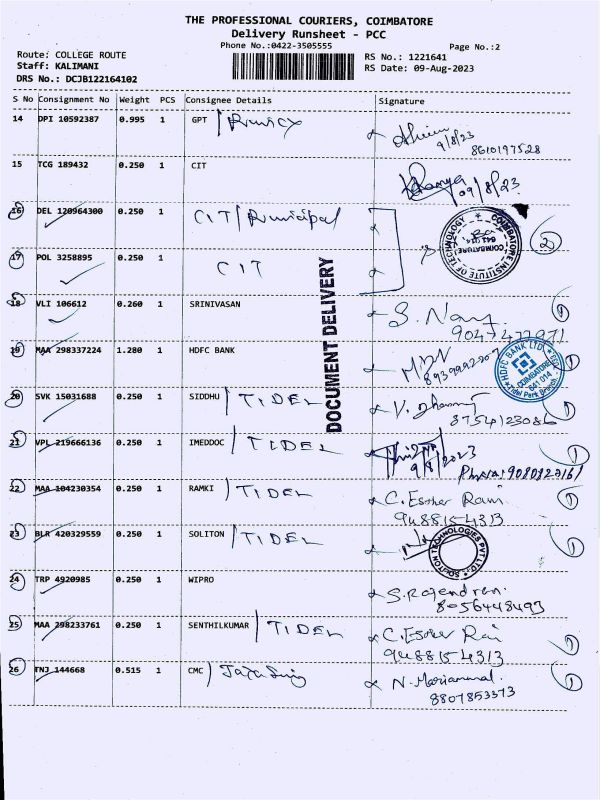 THE PROFESSIONAL COURIERS, COIMBATORE
Delivery Runsheet - PCC
Phone No.:0422-3505555
Page No.:2
Route: COLLEGE ROUTE
RS No.: 1221641
Staff: KALIMANI
RS Date: 09-Aug-2023
DRS No.: DCJB122164102
S No Consignment No Weight PCS Consignee Details Signature
14 DPI 10592387 0.995 1 GPT
9/8/23
8610197528
15 TCG 189432 0.250 1 CIT
09/8/23
16 DEL 120964300 0.250 1 CIT/Principal
COIMBATORE INSTITUTE OF TECHNOLOGY
COIMBATORE
641 014
2
17 POL 3258895 0.250 1 CIT
DOCUMENT DELIVERY
18 VLI 106612 0.260 1 SRINIVASAN
1
9047472971
19 MAA 298337224 1.280 1 HDFC BANK
HDFC BANK LTD.
COIMBATORE
641 014
Tidel Park Branch
1
20 SVK 15031688 0.250 1 SIDDHU / TIDEL
8754123086
1
21 VPL 219666136 0.250 1 IMEDDOC / TIDEL
9/8/2023
1
22 MAA 104230354 0.250 1 RAMKI / TIDEL
C. Esther Rani
9488154313
1
23 BLR 420329559 0.250 1 SOLITON / TIDEL
SOLITON TECHNOLOGIES PVT LTD.
1
24 TRP 4920985 0.250 1 WIPRO
S. Rajendran.
8056448493
25 MAA 298233761 0.250 1 SENTHILKUMAR / TIDEL
C. Esther Rani
9488154313
1
26 TNJ 144668 0.515 1 CMC
N. Mariammal
8807853373
1